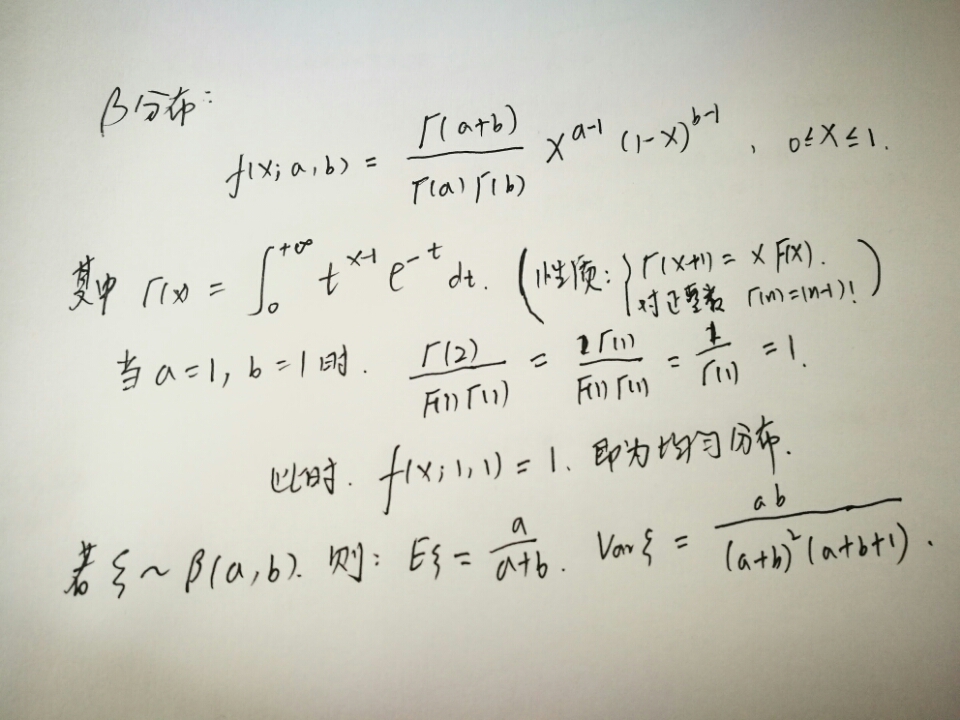 β分布:
f(x; a, b) = Γ(a+b) / Γ(a) Γ(b) x^{a-1} (1-x)^{b-1} , 0 ≤ x ≤ 1.
其中 Γ(x) = ∫_0^{+∞} t^{x-1} e^{-t} dt. (性质: { Γ(x+1) = x Γ(x). 对正整数 Γ(n) = (n-1)! )
当 a=1, b=1 时. Γ(2) / Γ(1) Γ(1) = 1 Γ(1) / Γ(1) Γ(1) = 1 / Γ(1) = 1.
此时. f(x; 1, 1) = 1. 即为均匀分布.
若 ξ ~ β(a, b). 则: Eξ = a / a+b . Var ξ = ab / (a+b)^2 (a+b+1) .